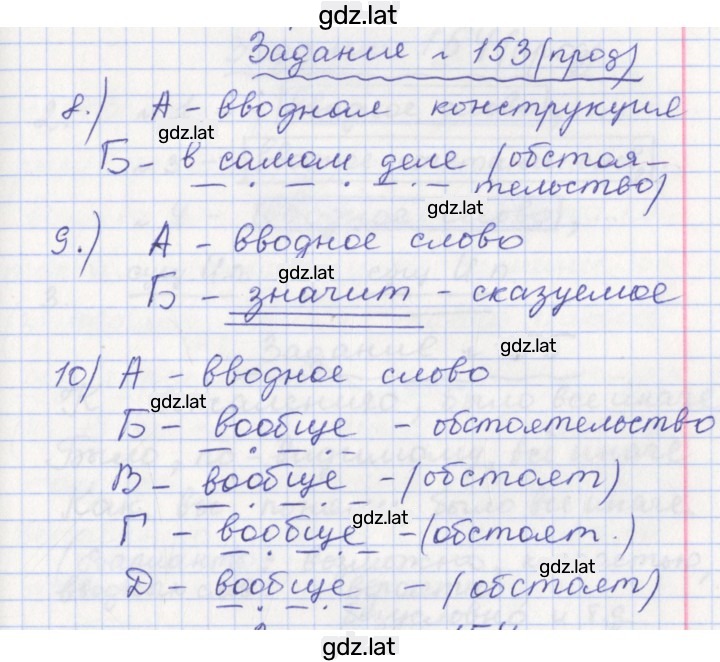 gdz.lat
Задание № 153 (прод)
8.) А - вводная конструкция
gdz.lat
Б - в самом деле (обстоя-
тельство)
gdz.lat
9.) А - вводное слово
gdz.lat
Б - значит - сказуемое
gdz.lat
10) А - вводное слово
gdz.lat
Б - вообще - обстоятельство
В - вообще - (обстоят)
gdz.lat
Г - вообще - (обстоят.)
gdz.lat
Д - вообще - (обстоят)
gdz.lat